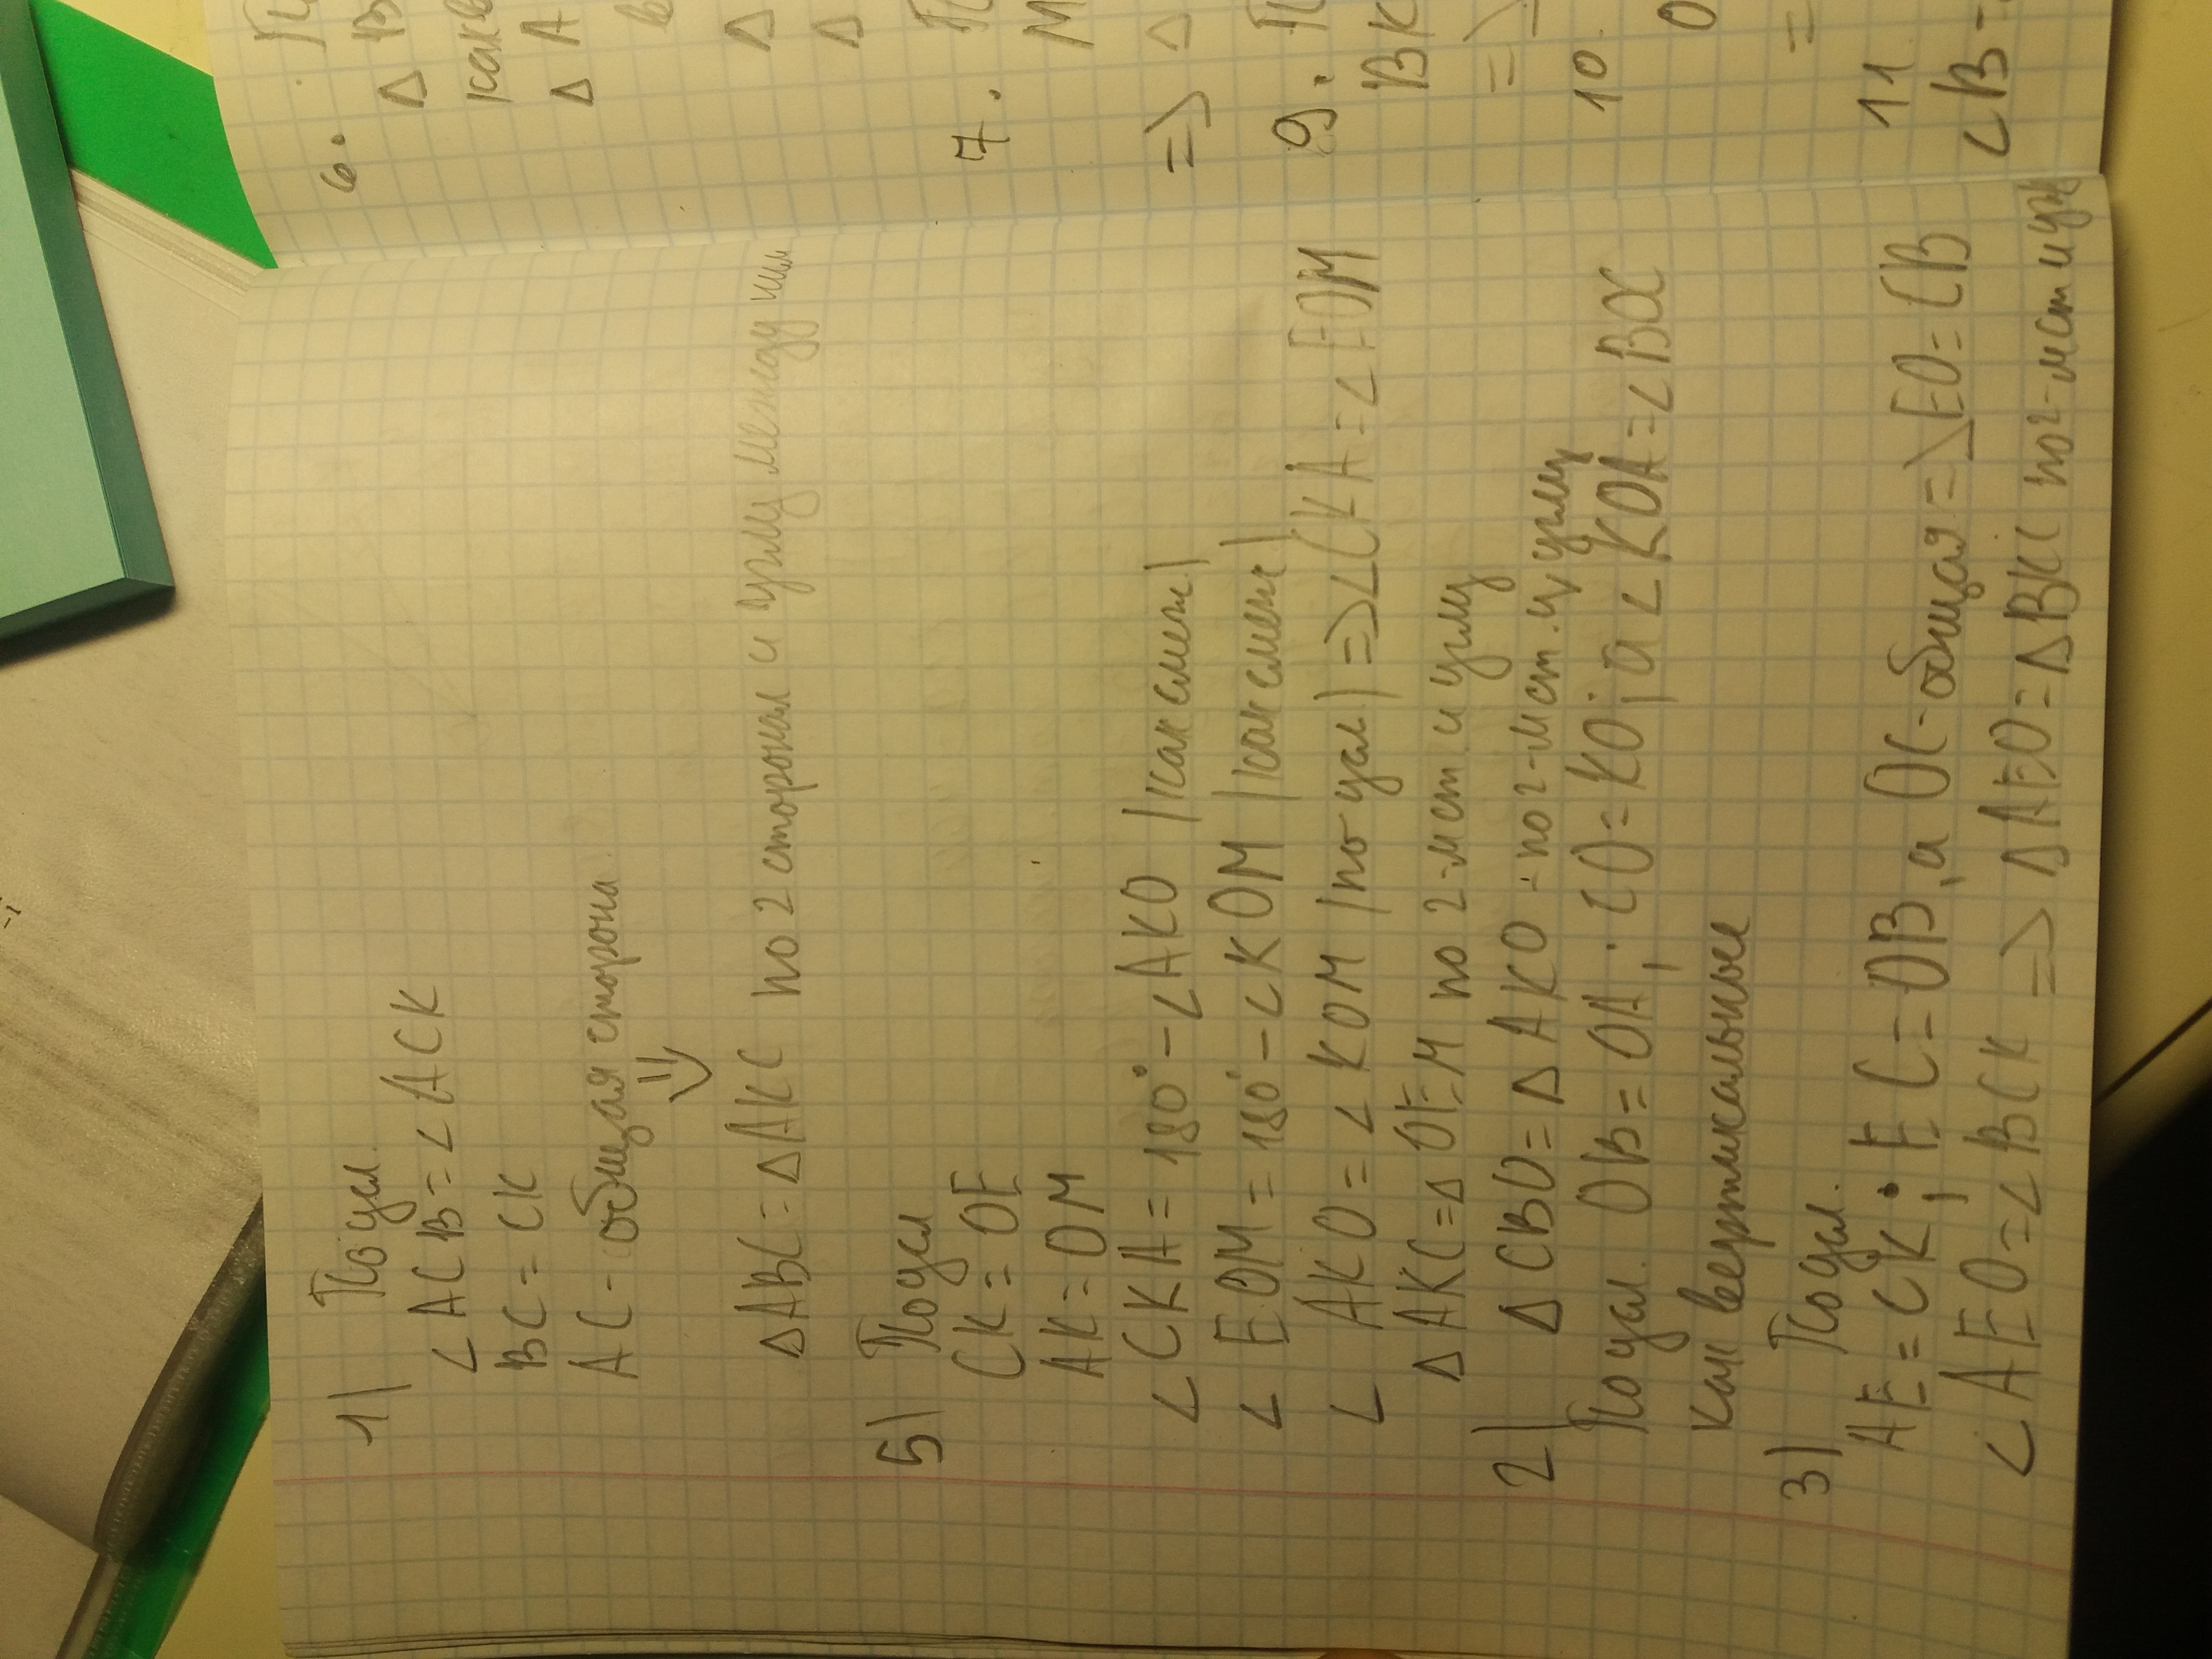 1) По усл.
∠ACB = ∠ACK
BC = CK
AC - общая сторона
=>
ΔABC = ΔAKC по 2 сторонам и углу между ним
5) По усл
CK = OE
AK = OM
∠CKA = 180° - ∠AKO (как смеж)
∠EOM = 180° - ∠KOM (как смеж)
∠AKO = ∠KOM (по усл) => ∠CKA = ∠EOM
ΔAKC = ΔOEM по 2-м ст и углу
2) ΔCBO = ΔAKO - по 2-м ст. и углу
По усл. OB = OA; CO = KO; а ∠KOA = ∠BOC
как вертикальные
3) По усл.
AE = CK; EC = OB, а OC - общая => EO = CB
∠AEO = ∠BCK => ΔAEO = ΔBKC по 2-м ст и угл
6.
Δ B
как в
Δ A
в
Δ
Δ
7.
М
=> Δ
9. П
BK
=>
10.
O
=
11
∠B =